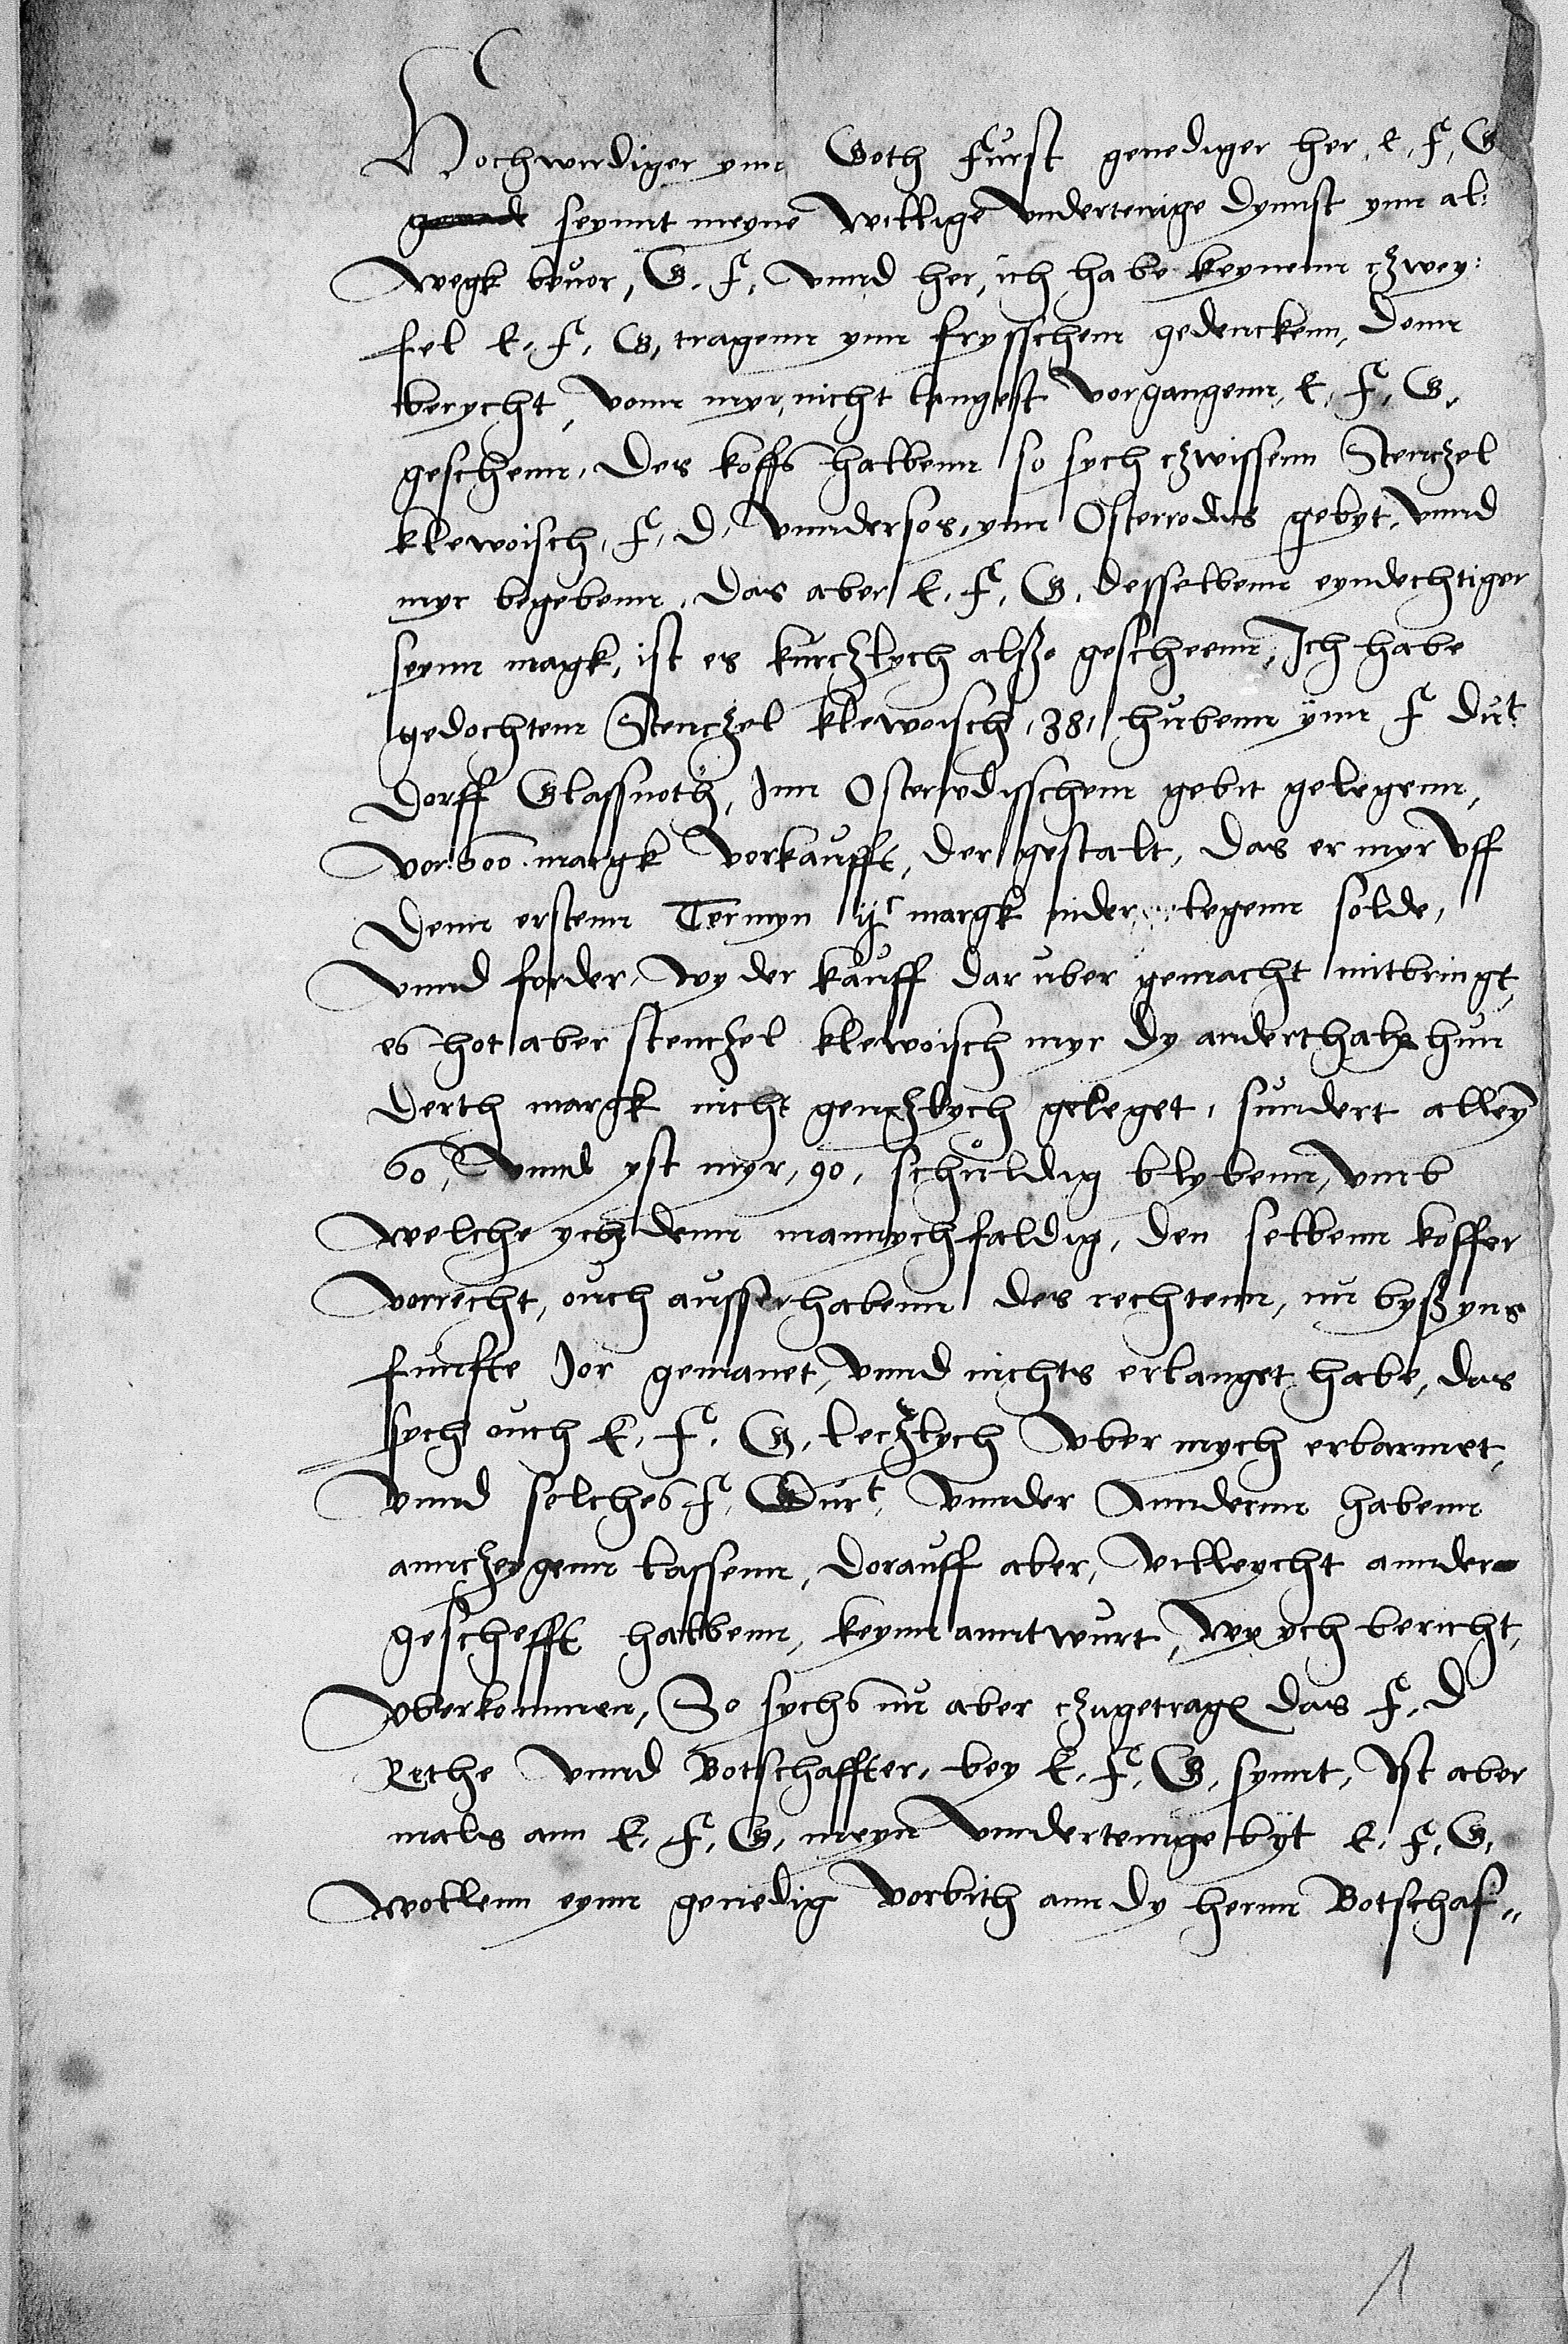 Hochwirdiger ynn Goth Furst genediger her, E, F, G
seynnt meyne willige underteinige dynnst ynn al:
wegk bevor, G, F, unnd her, ich habe keynenn czwey:
fel E, F, G, tragenn ynn fryschem gedenckenn, denn
berycht, vonn myr, nicht langest vorgangenn, E, F, G,
geschenn, des koffs halbenn so sych czwissenn Stenczel
klewoisch, F, D, unndersos, ynn Osterrodis gebyt, unnd
myr begebenn, das aber E, F, G, desselbenn eyndechtiger
seynn magk, ist es kurczlych alßo gescheenn, Ich habe
gedochtem Stenczel klewoisch, 38, hubenn ynn F dut
dorff Glassnoth, Inn Osterodisschenn gebit gelegenn,
vor 600 margk vorkaufft, der gestalt, das er myr uff
denn erstenn Termyn margk nider legenn solde,
unnd forder, wy der kauff dar uber gemacht mitbringt,
es hot aber stenczel klewoisch myr dy anderthalb hun
derth margk nicht genczlych geleget, sundert alleyn
60, unnd yst myr, 90, schuldig blybenn, umb
welche ych denn mannychfaldig, den selbenn koffer
vorrecht, ouch ausserhabenn des rechtenn, nu byß yns
funfte Jor gemanet, unnd nichts erlanget habe, das
sych ouch E, F, G, leczlych uber mych erbarmet,
unnd solches F, Durt, unnder anndernn habenn
annczeygenn lassenn, dorauff aber, villeycht annder
geschefft halbenn, keynn anntwurt, wy ych bericht,
uberkommen, So sychs nu aber czugetragen das F, D
Rethe unnd Botschaffter, bey E, F, G, synnt, Ist aber
mals ann E, F, G, meyn unnderteinige byt E, F, G,
wollenn eynn genedig vorbith ann dy hernn Botschaf„
1